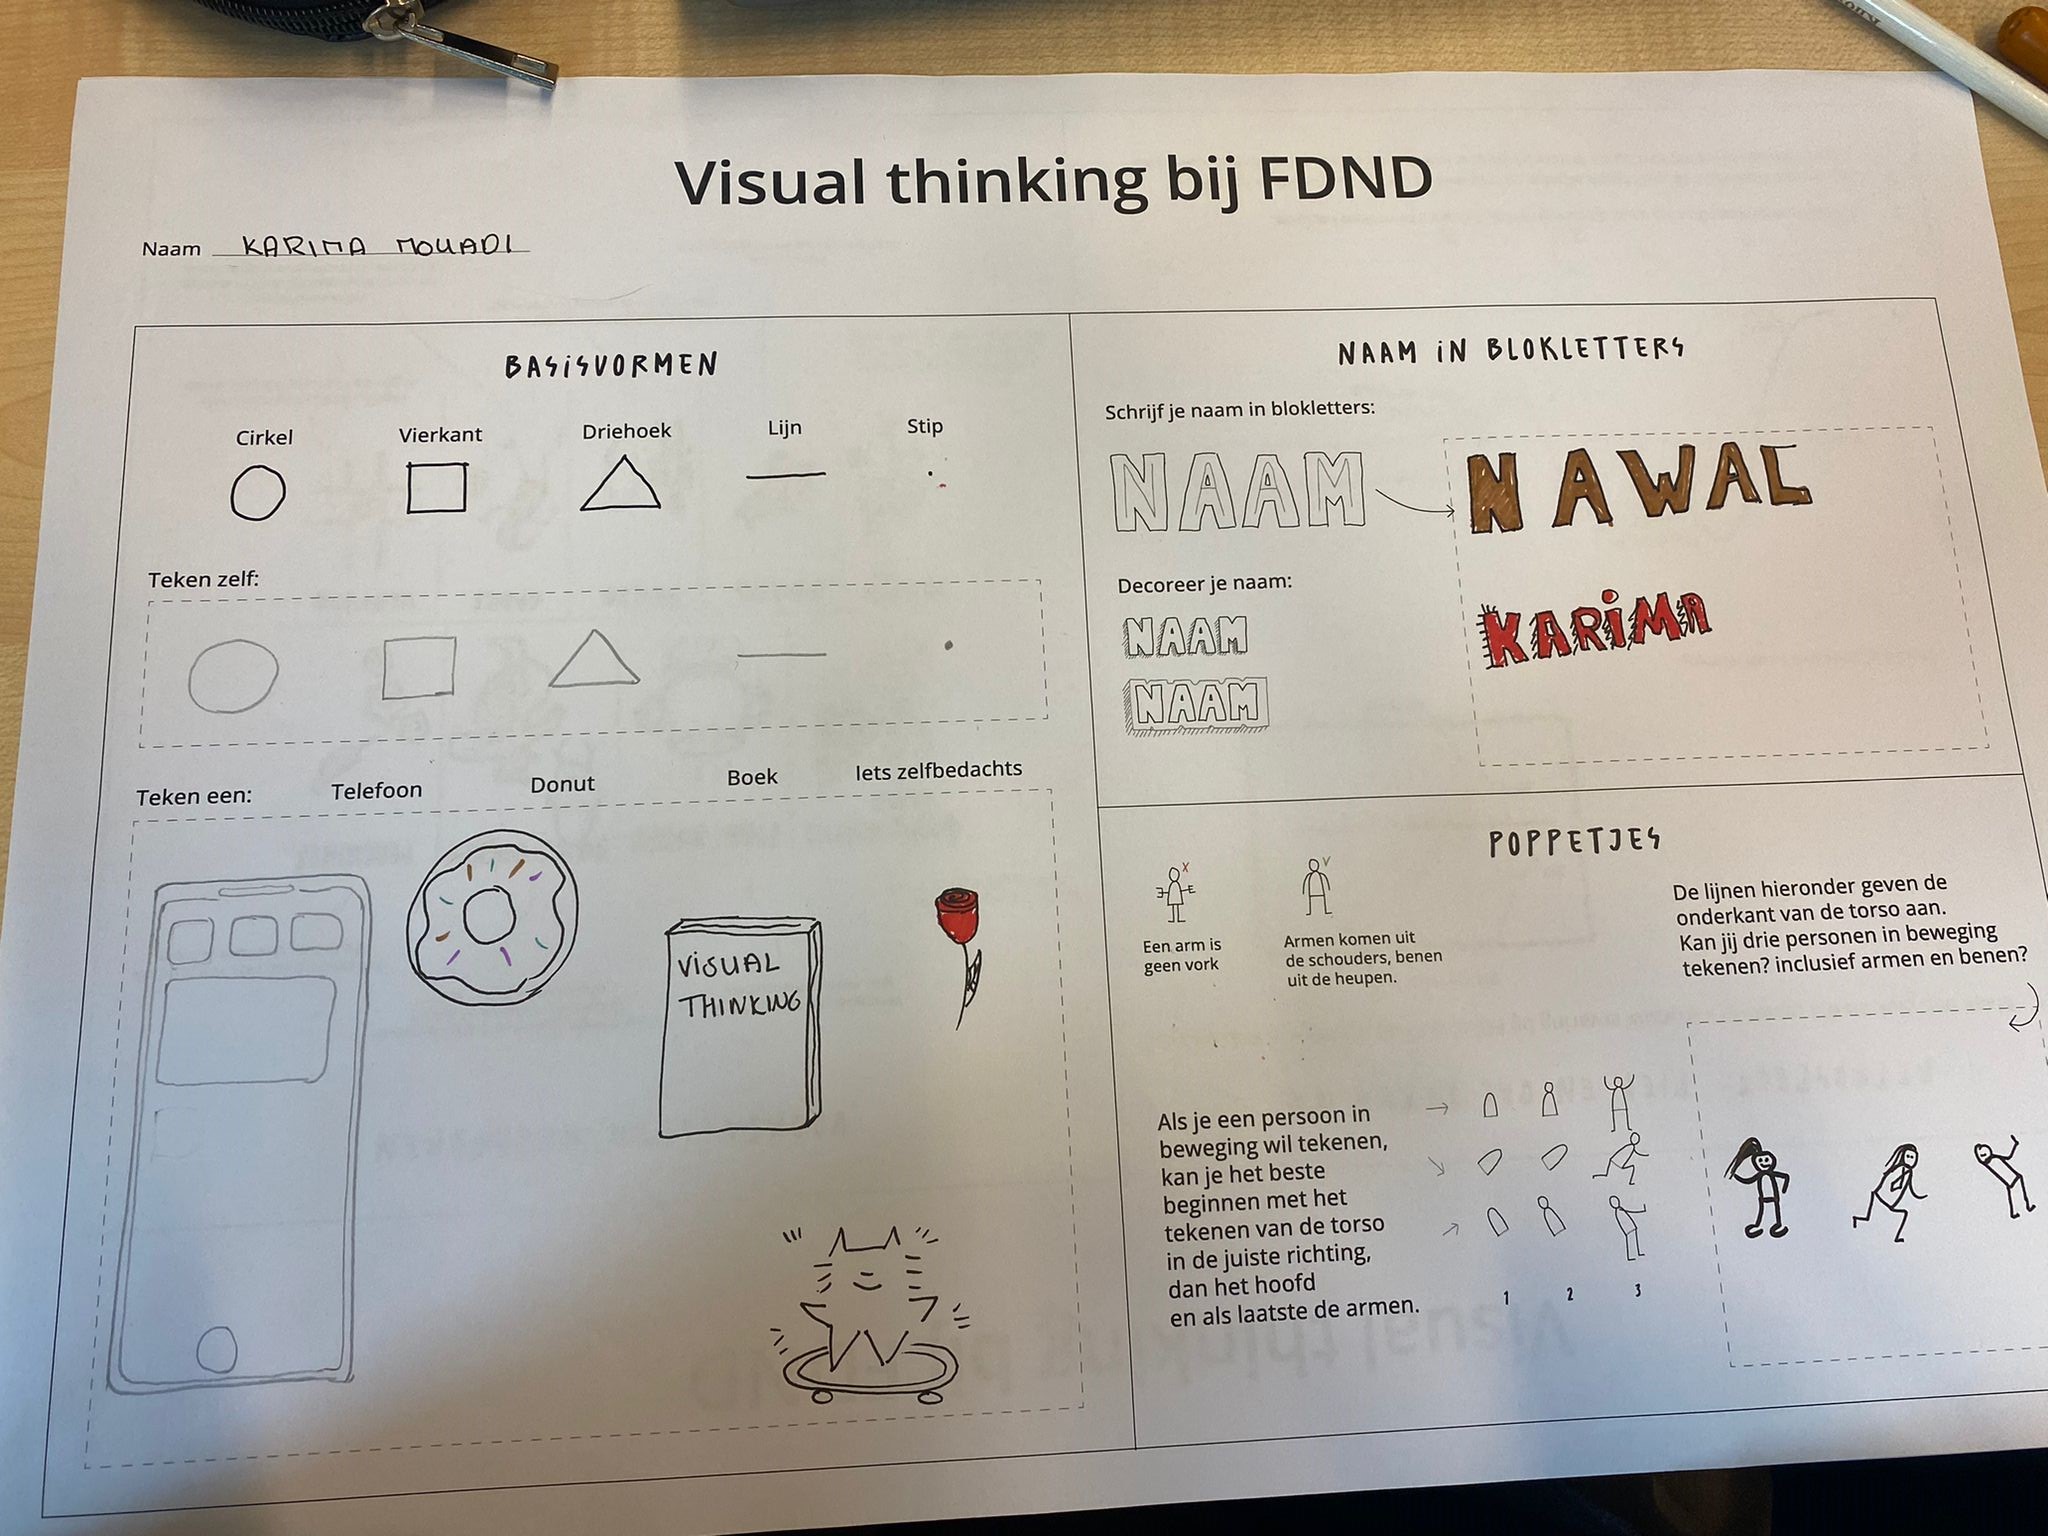 Visual thinking bij FDND
Naam KARIMA MOUADI
BASiSVORMEN
Cirkel Vierkant Driehoek Lijn Stip
Teken zelf:
Teken een: Telefoon Donut Boek Iets zelfbedachts
VISUAL
THINKING
NAAM iN BLOKLETTERS
Schrijf je naam in blokletters:
NAAM
NAWAL
Decoreer je naam:
NAAM
KARiMA
NAAM
POPPETJES
X
V
Een arm is
geen vork
Armen komen uit
de schouders, benen
uit de heupen.
De lijnen hieronder geven de
onderkant van de torso aan.
Kan jij drie personen in beweging
tekenen? inclusief armen en benen?
Als je een persoon in
beweging wil tekenen,
kan je het beste
beginnen met het
tekenen van de torso
in de juiste richting,
dan het hoofd
en als laatste de armen.
1 2 3